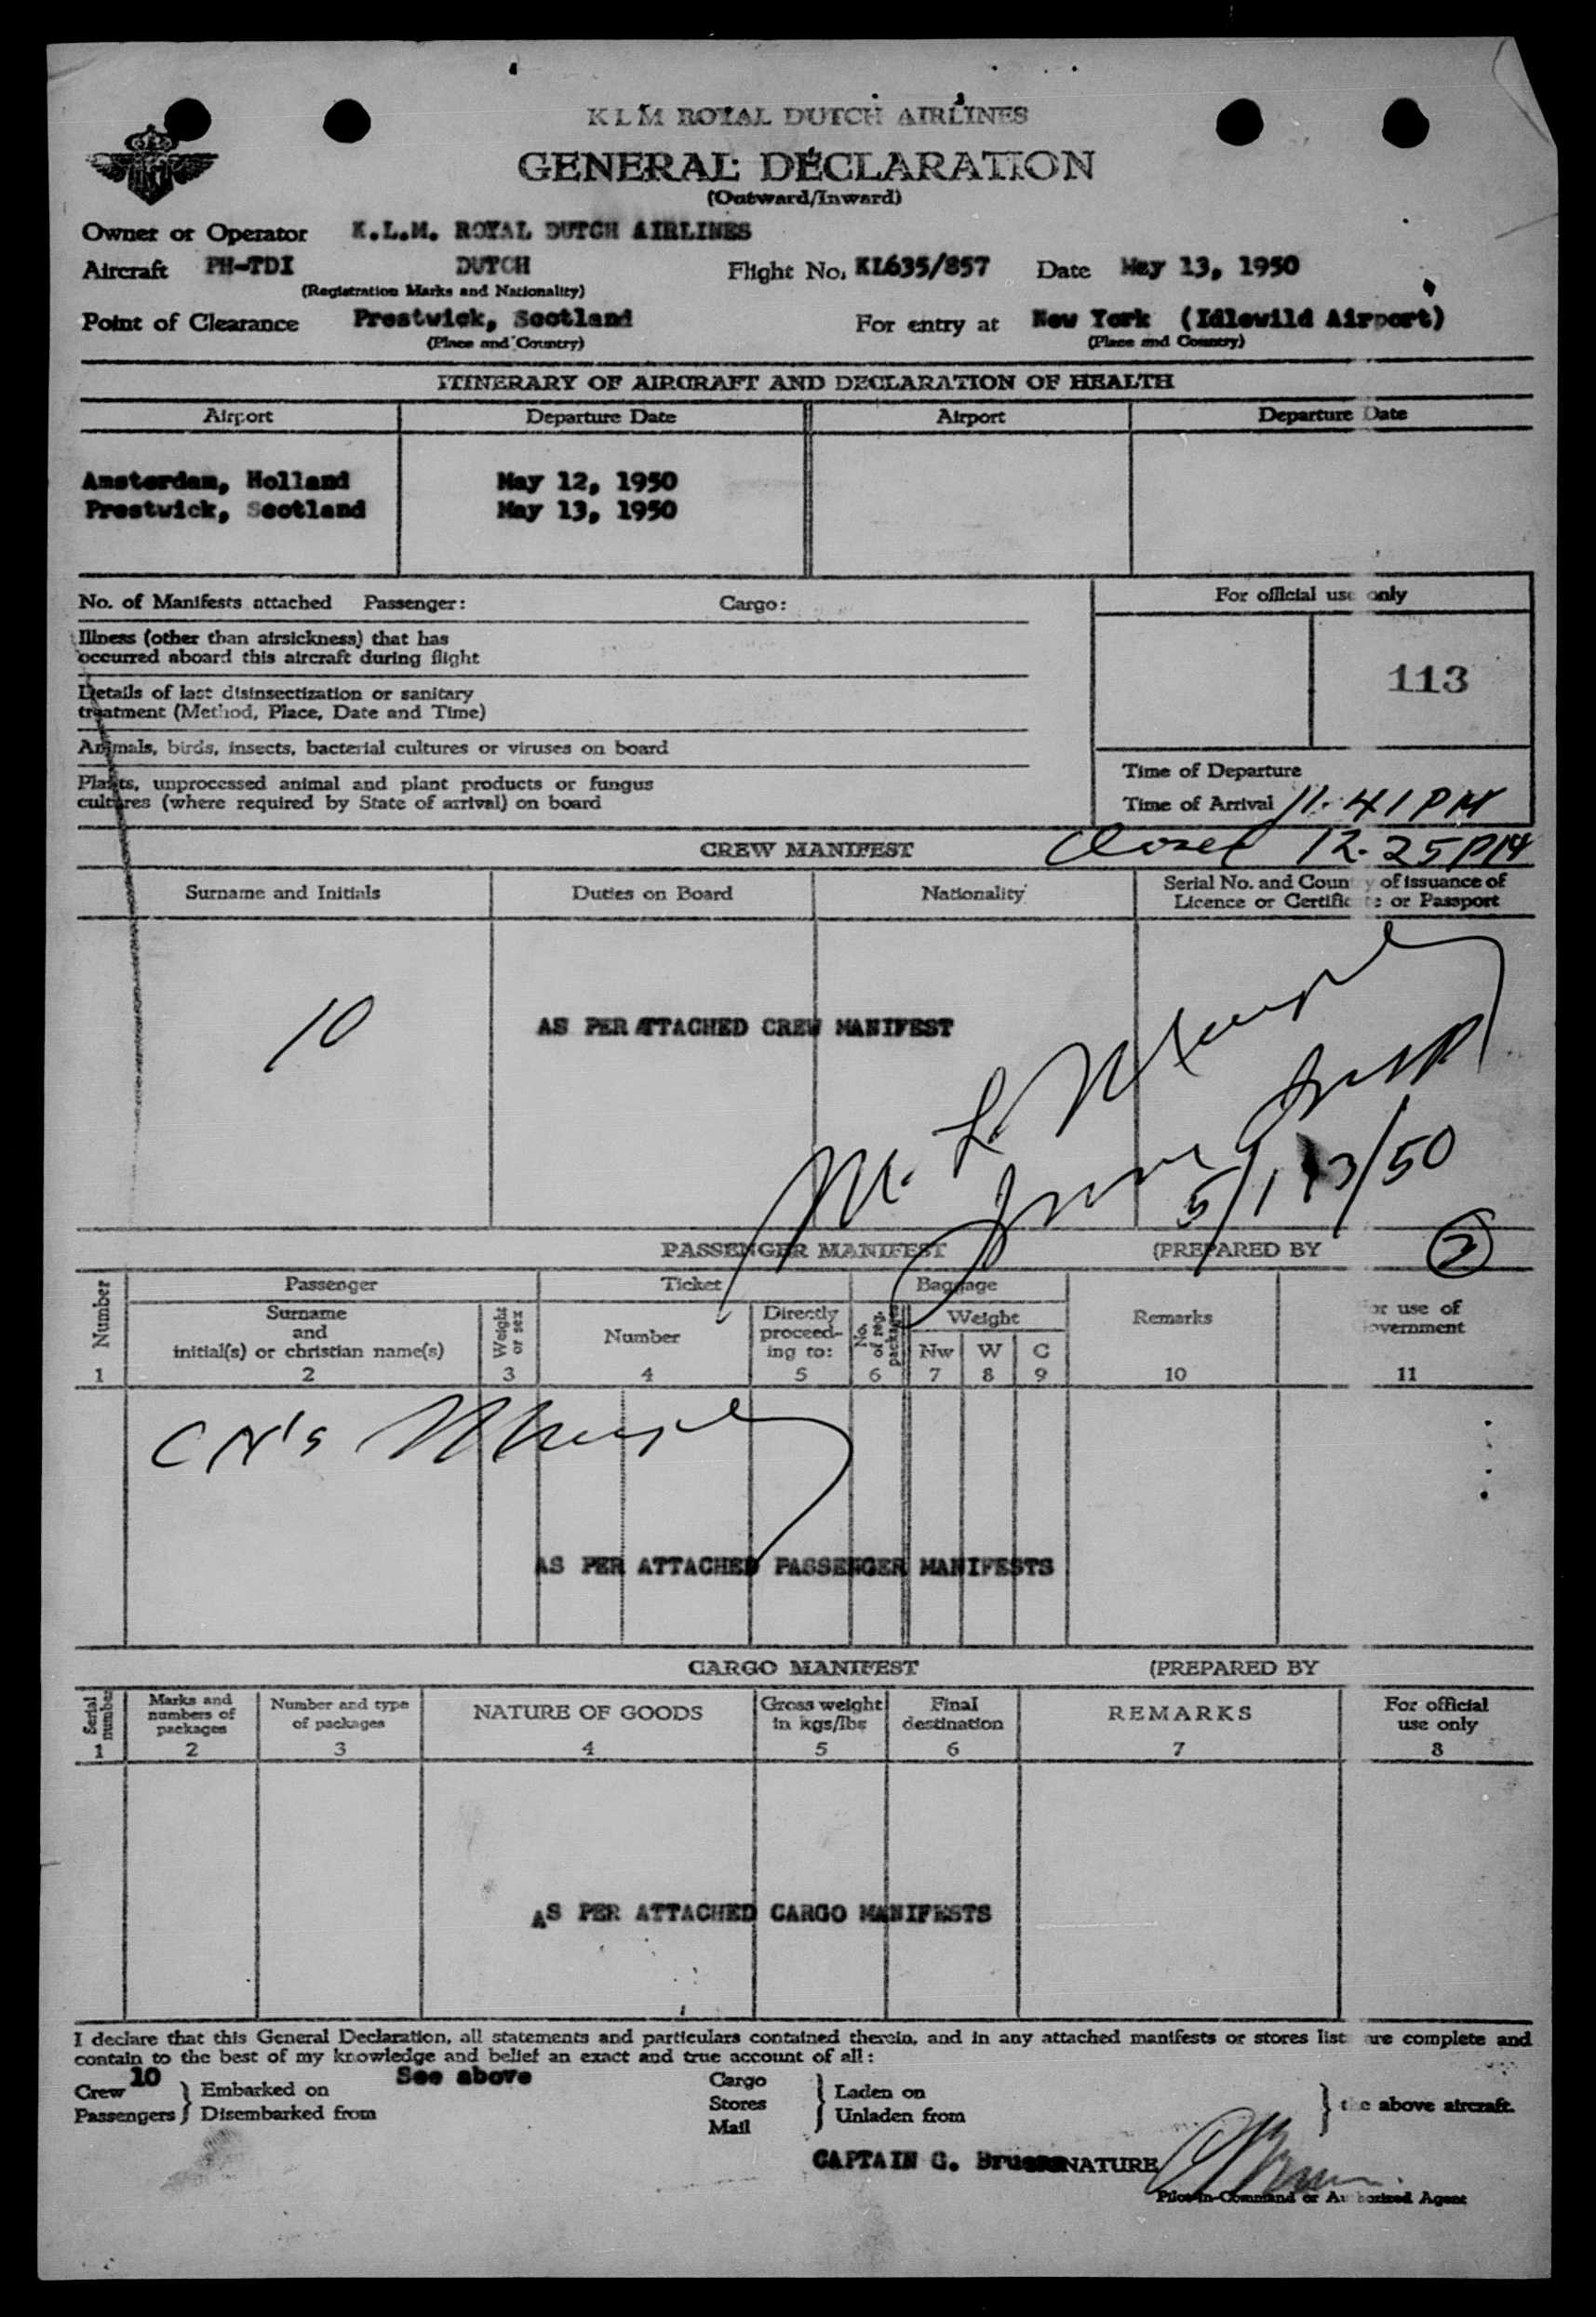 KLM ROYAL DUTCH AIRLINES
GENERAL DECLARATION
(Outward/Inward)
Owner or Operator K.L.M. ROYAL DUTCH AIRLINES
Aircraft PH-TDI DUTCH Flight No. KL635/857 Date May 13, 1950
(Registration Marks and Nationality)
Point of Clearance Prestwick, Scotland For entry at New York (Idlewild Airport)
(Place and Country) (Place and Country)
ITINERARY OF AIRCRAFT AND DECLARATION OF HEALTH
Airport Departure Date Airport Departure Date
Amsterdam, Holland May 12, 1950
Prestwick, Scotland May 13, 1950
No. of Manifests attached Passenger: Cargo: For official use only
Illness (other than airsickness) that has
occurred aboard this aircraft during flight
113
Details of last disinsectization or sanitary
treatment (Method, Place, Date and Time)
Animals, birds, insects, bacterial cultures or viruses on board
Plants, unprocessed animal and plant products or fungus
cultures (where required by State of arrival) on board
Time of Departure
Time of Arrival 11.41 PM
CREW MANIFEST Closed 12.25 PM
Surname and Initials Duties on Board Nationality Serial No. and Country of issuance of
Licence or Certificate or Passport
10 AS PER ATTACHED CREW MANIFEST
M. L.
5/13/50
PASSENGER MANIFEST (PREPARED BY 2
Number Passenger Ticket Baggage Remarks For use of
Government
Surname
and
initial(s) or christian name(s) Weight
or sex Number Directly
proceed-
ing to: No.
of reg.
packages Weight
Nw W C
1 2 3 4 5 6 7 8 9 10 11
CN's
AS PER ATTACHED PASSENGER MANIFESTS
CARGO MANIFEST (PREPARED BY
Serial
number Marks and
numbers of
packages Number and type
of packages NATURE OF GOODS Gross weight
in kgs/lbs Final
destination REMARKS For official
use only
1 2 3 4 5 6 7 8
AS PER ATTACHED CARGO MANIFESTS
I declare that this General Declaration, all statements and particulars contained therein, and in any attached manifests or stores list are complete and
contain to the best of my knowledge and belief an exact and true account of all:
Crew 10 } Embarked on See above Cargo } Laden on } the above aircraft.
Passengers } Disembarked from Stores Unladen from
Mail
CAPTAIN G. SIGNATURE
Pilot-in-Command or Authorized Agent